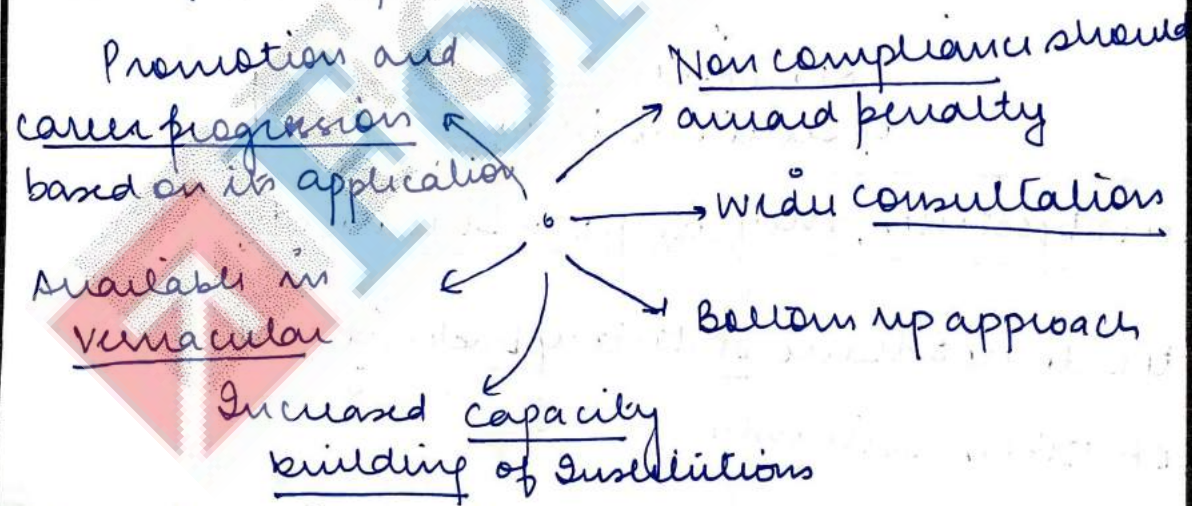 Promotion and
career progression
based on its application
Non compliance should
award penalty
Wide Consultations
Available in
Vernacular
Bottom up approach
Increased capacity
building of Institutions